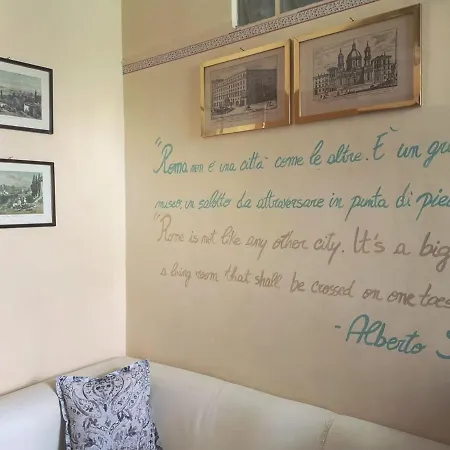 "Roma non è una città come le altre. È un
museo, un salotto da attraversare in punta di
"Rome is not like any other city. It's a big
a living room that shall be crossed on one toes
- Alberto